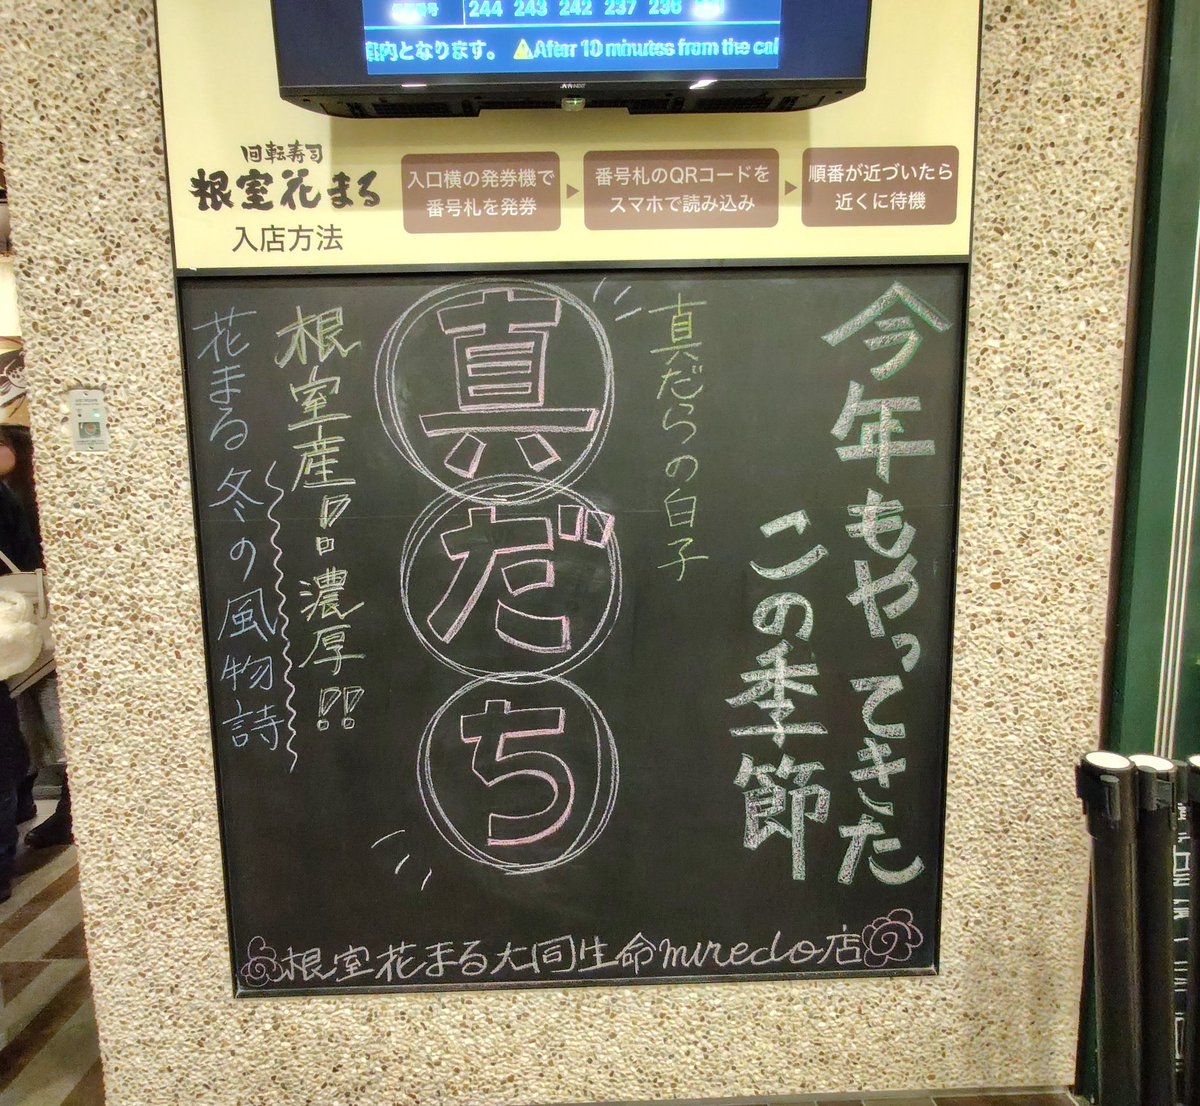 244 243 242 237 236
内となります。 ⚠After 10 minutes from the cal
回転寿司
根室花まる
入店方法
入口横の発券機で
番号札を発券
番号札のQRコードを
スマホで読み込み
順番が近づいたら
近くに待機
今年もやってきた
この季節
真だらの白子
真だち
根室産!!濃厚!!
花まる冬の風物詩
根室花まる大同生命miredo店